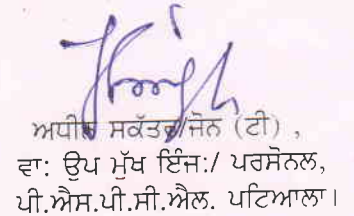 ਅਧੀਨ ਸਕੱਤਰ/ਜੋਨ (ਟੀ) ,
ਵਾ: ਉਪ ਮੁੱਖ ਇੰਜ:/ ਪਰਸੋਨਲ,
ਪੀ.ਐਸ.ਪੀ.ਸੀ.ਐਲ. ਪਟਿਆਲਾ।